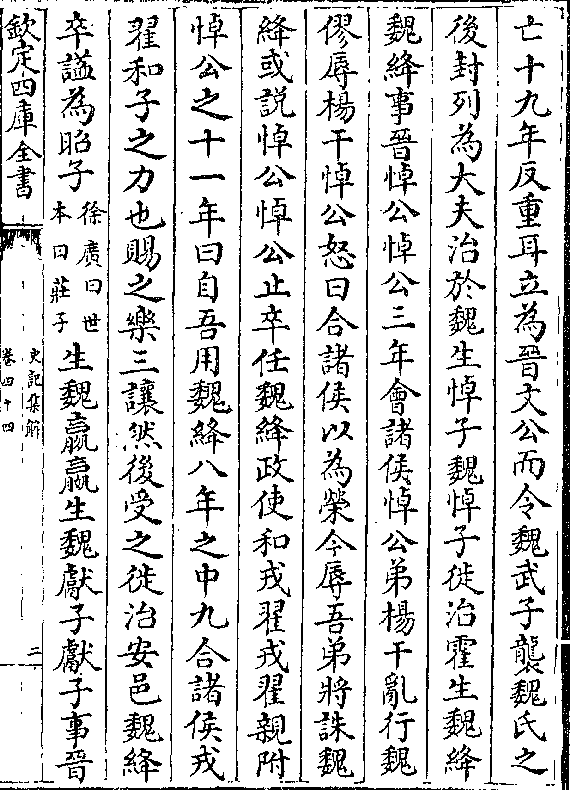 亡十九年反重耳立為晉文公而令魏武子襲魏氏之
後封列為大夫治於魏生悼子魏悼子徙治霍生魏絳
魏絳事晉悼公悼公三年會諸侯悼公弟楊干亂行魏
僇辱楊干悼公怒曰合諸侯以為榮今辱吾弟將誅魏
絳或說悼公悼公止卒任魏絳政使和戎翟戎翟親附
悼公之十一年曰自吾用魏絳八年之中九合諸侯戎
翟和子之力也賜之樂三讓然後受之徙治安邑魏絳
卒謚為昭子徐廣曰世本曰莊子生魏嬴嬴生魏獻子獻子事晉
欽定四庫全書
史記集解
卷四十四
三